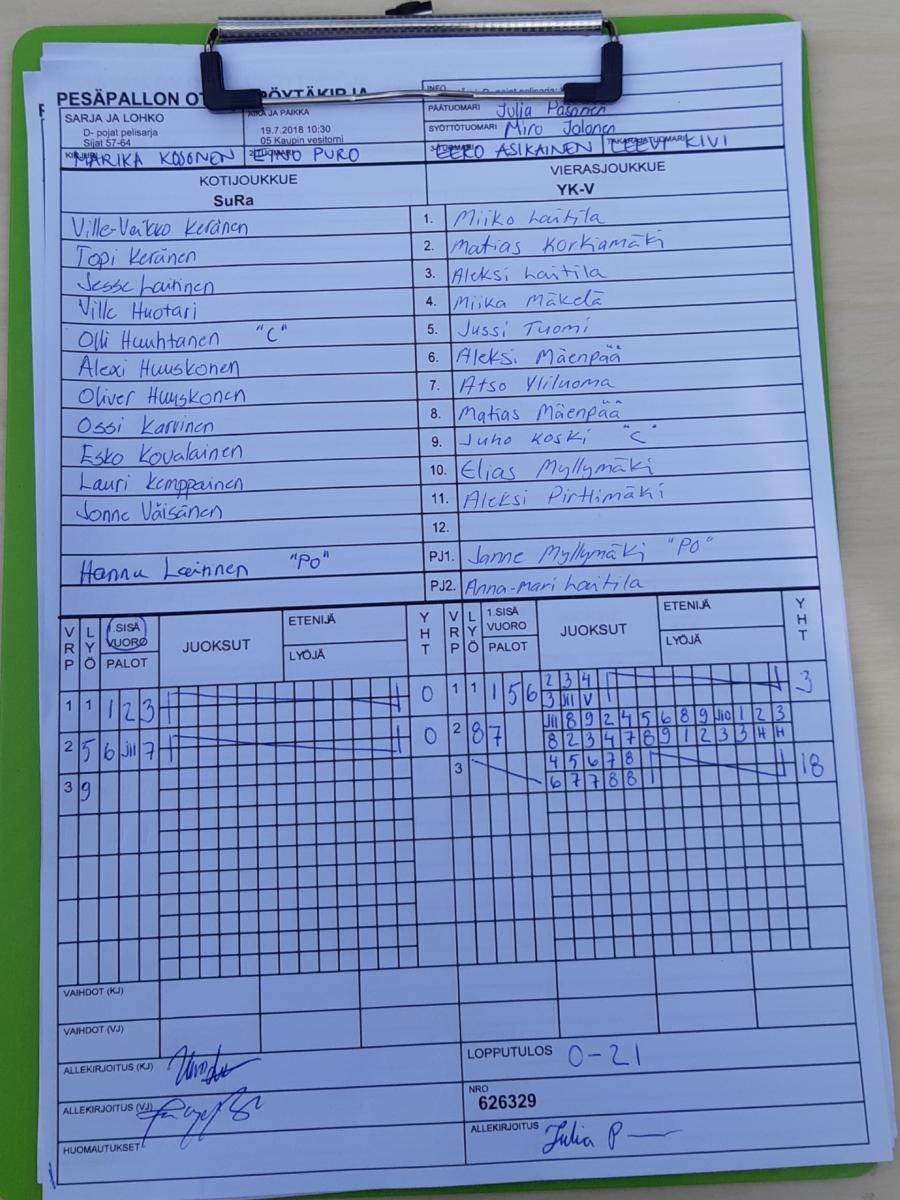 PESÄPALLON OT PÖYTÄKIRJA
INFO
SARJA JA LOHKO
D- pojat pelisarja
Sijat 57-64
AIKA JA PAIKKA
19.7.2018 10:30
05 Kaupin vesitorni
PÄÄTUOMARI Julia Pasanen
SYÖTTÖTUOMARI Miro Jalonen
KIRJURI MARIKA KOSONEN
EINO PURO
3-TUOMARI EERO ASIKAINEN
TAKARAJATUOMARI LEEVI KIVI
KOTIJOUKKUE
SuRa
VIERASJOUKKUE
YK-V
Ville-Veikko Keränen 1. Miiko Laitila
Topi Keränen 2. Matias Korkiamäki
Jesse Laitinen 3. Aleksi Laitila
Ville Huotari 4. Miika Mäkelä
Olli Huuhtanen "C" 5. Jussi Tuomi
Alexi Huuskonen 6. Aleksi Mäenpää
Oliver Huuskonen 7. Atso Yliluoma
Ossi Karvinen 8. Matias Mäenpää
Esko Kovalainen 9. Juho Koski "C"
Lauri Kemppainen 10. Elias Myllymäki
Jonne Väisänen 11. Aleksi Pirttimäki
12.
Hanna Leinnen "PO" PJ1. Janne Myllymäki "PO"
PJ2. Anna-Mari Laitila
VRP LYÖ 1.SISÄ VUORO PALOT JUOKSUT ETENIJÄ LYÖJÄ YHT VRP LYÖ 1.SISÄ VUORO PALOT JUOKSUT ETENIJÄ LYÖJÄ YHT
1 1 1 2 3 0 1 1 1 5 6 2 3 4 3
3 JIII V
2 5 6 JII 7 0 2 8 7 JII 8 9 2 4 5 6 8 9 J10 1 2 3
8 2 3 4 7 8 9 1 2 3 3 H H
3 9 3 4 5 6 7 8 18
6 7 7 8 8
VAIHDOT (KJ)
VAIHDOT (VJ)
ALLEKIRJOITUS (KJ)
LOPPUTULOS 0-21
ALLEKIRJOITUS (VJ)
NRO
626329
HUOMAUTUKSET
ALLEKIRJOITUS Julia P